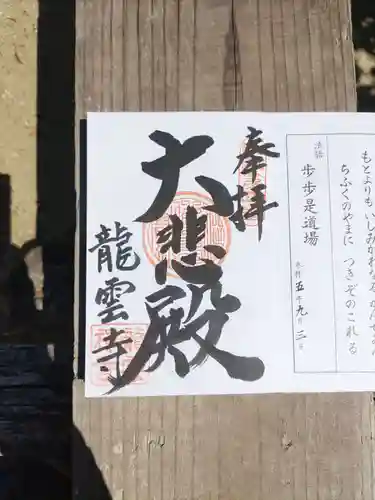 もとよりも いしみかわなる かんぜおん
ちふくのやまに つきぞのこれる
法語
歩歩是道場
令和五年九月三日
奉拝
大悲殿
龍雲寺